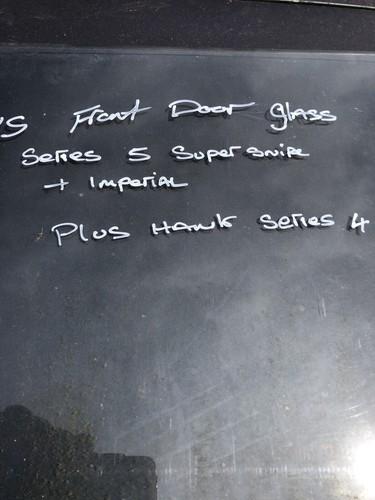 'S Front Door glass
Series 5 Super Snipe
+ Imperial
Plus Hawk Series 4